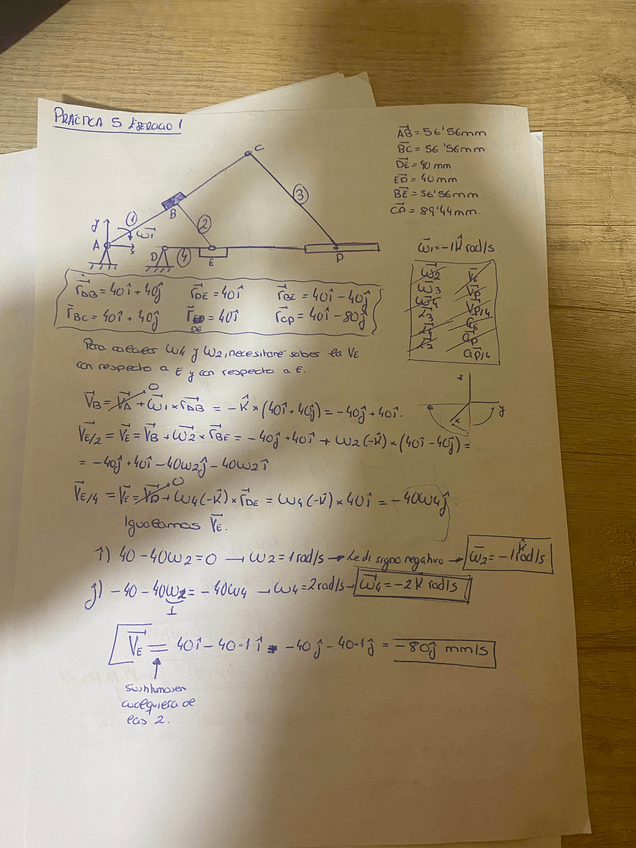 PRÁCTICA 5 EJERCICIO 1
AB = 56'56mm
BC = 56'56mm
DE = 40 mm
EP = 40mm
BE = 56'56mm
CP = 89'44mm.
C
3
1
B
2
y
ω1
A
x
D
4
E
P
ω1 = -1k rad/s.
ω2
ω3
ω4
VE
VP
VP/4
aE
aP
aP/4
rAB = 40i + 40j rDE = 40i rBE = 40i - 40j
rBC = 40i + 40j rDE = 40i rCP = 40i - 80j
Para calcular ω4 y ω2, necesitaré saber la VE
con respecto a E y con respecto a E.
z
y
x
VB = VA + ω1 x rAB = -k x (40i + 40j) = -40j + 40i.
0
VE/2 = VE = VB + ω2 x rBE = -40j + 40i + ω2(-k) x (40i - 40j) =
= -40j + 40i - 40ω2j - 40ω2i
VE/4 = VE = VD + ω4(-k) x rDE = ω4(-k) x 40i = -40ω4j
0
Igualamos VE.
i) 40 - 40ω2 = 0 → ω2 = 1rad/s → le di signo negativo → ω2 = -1k rad/s
j) -40 - 40ω2 = -40ω4 → ω4 = 2rad/s → ω4 = -2k rad/s
1
VE = 40i - 40·1i - 40j - 40·1j = -80j mm/s
cualquiera de
las 2.